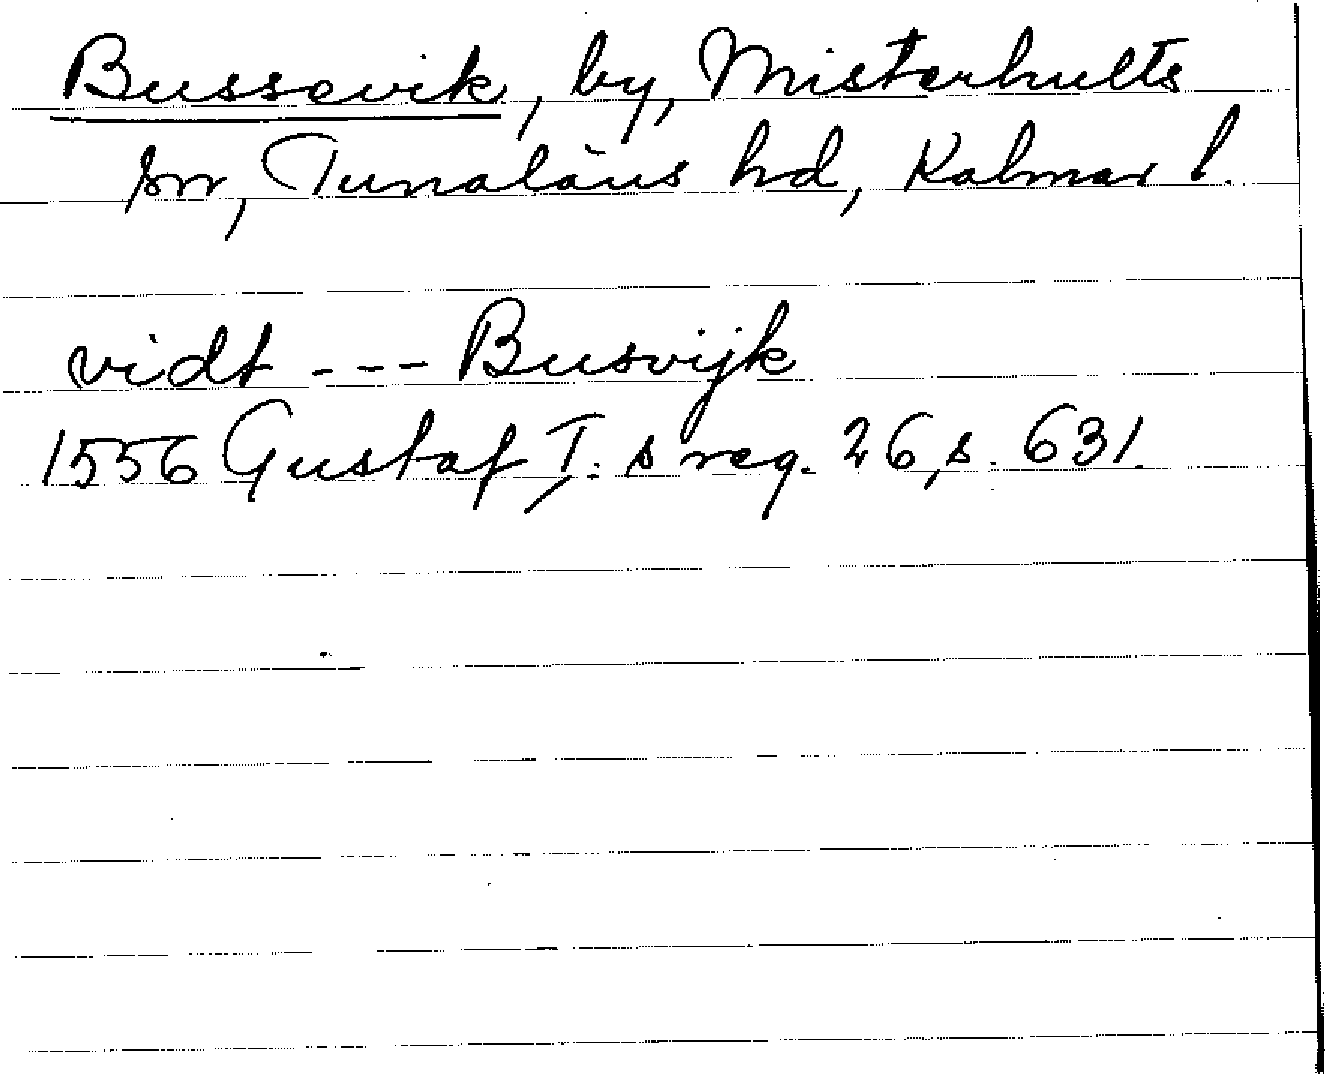 Bussevik, by, Misterhults
sn, Tunaläns hd, Kalmar l.
vidt --- Busvijk
1556 Gustaf I:s reg. 26, s. 631.